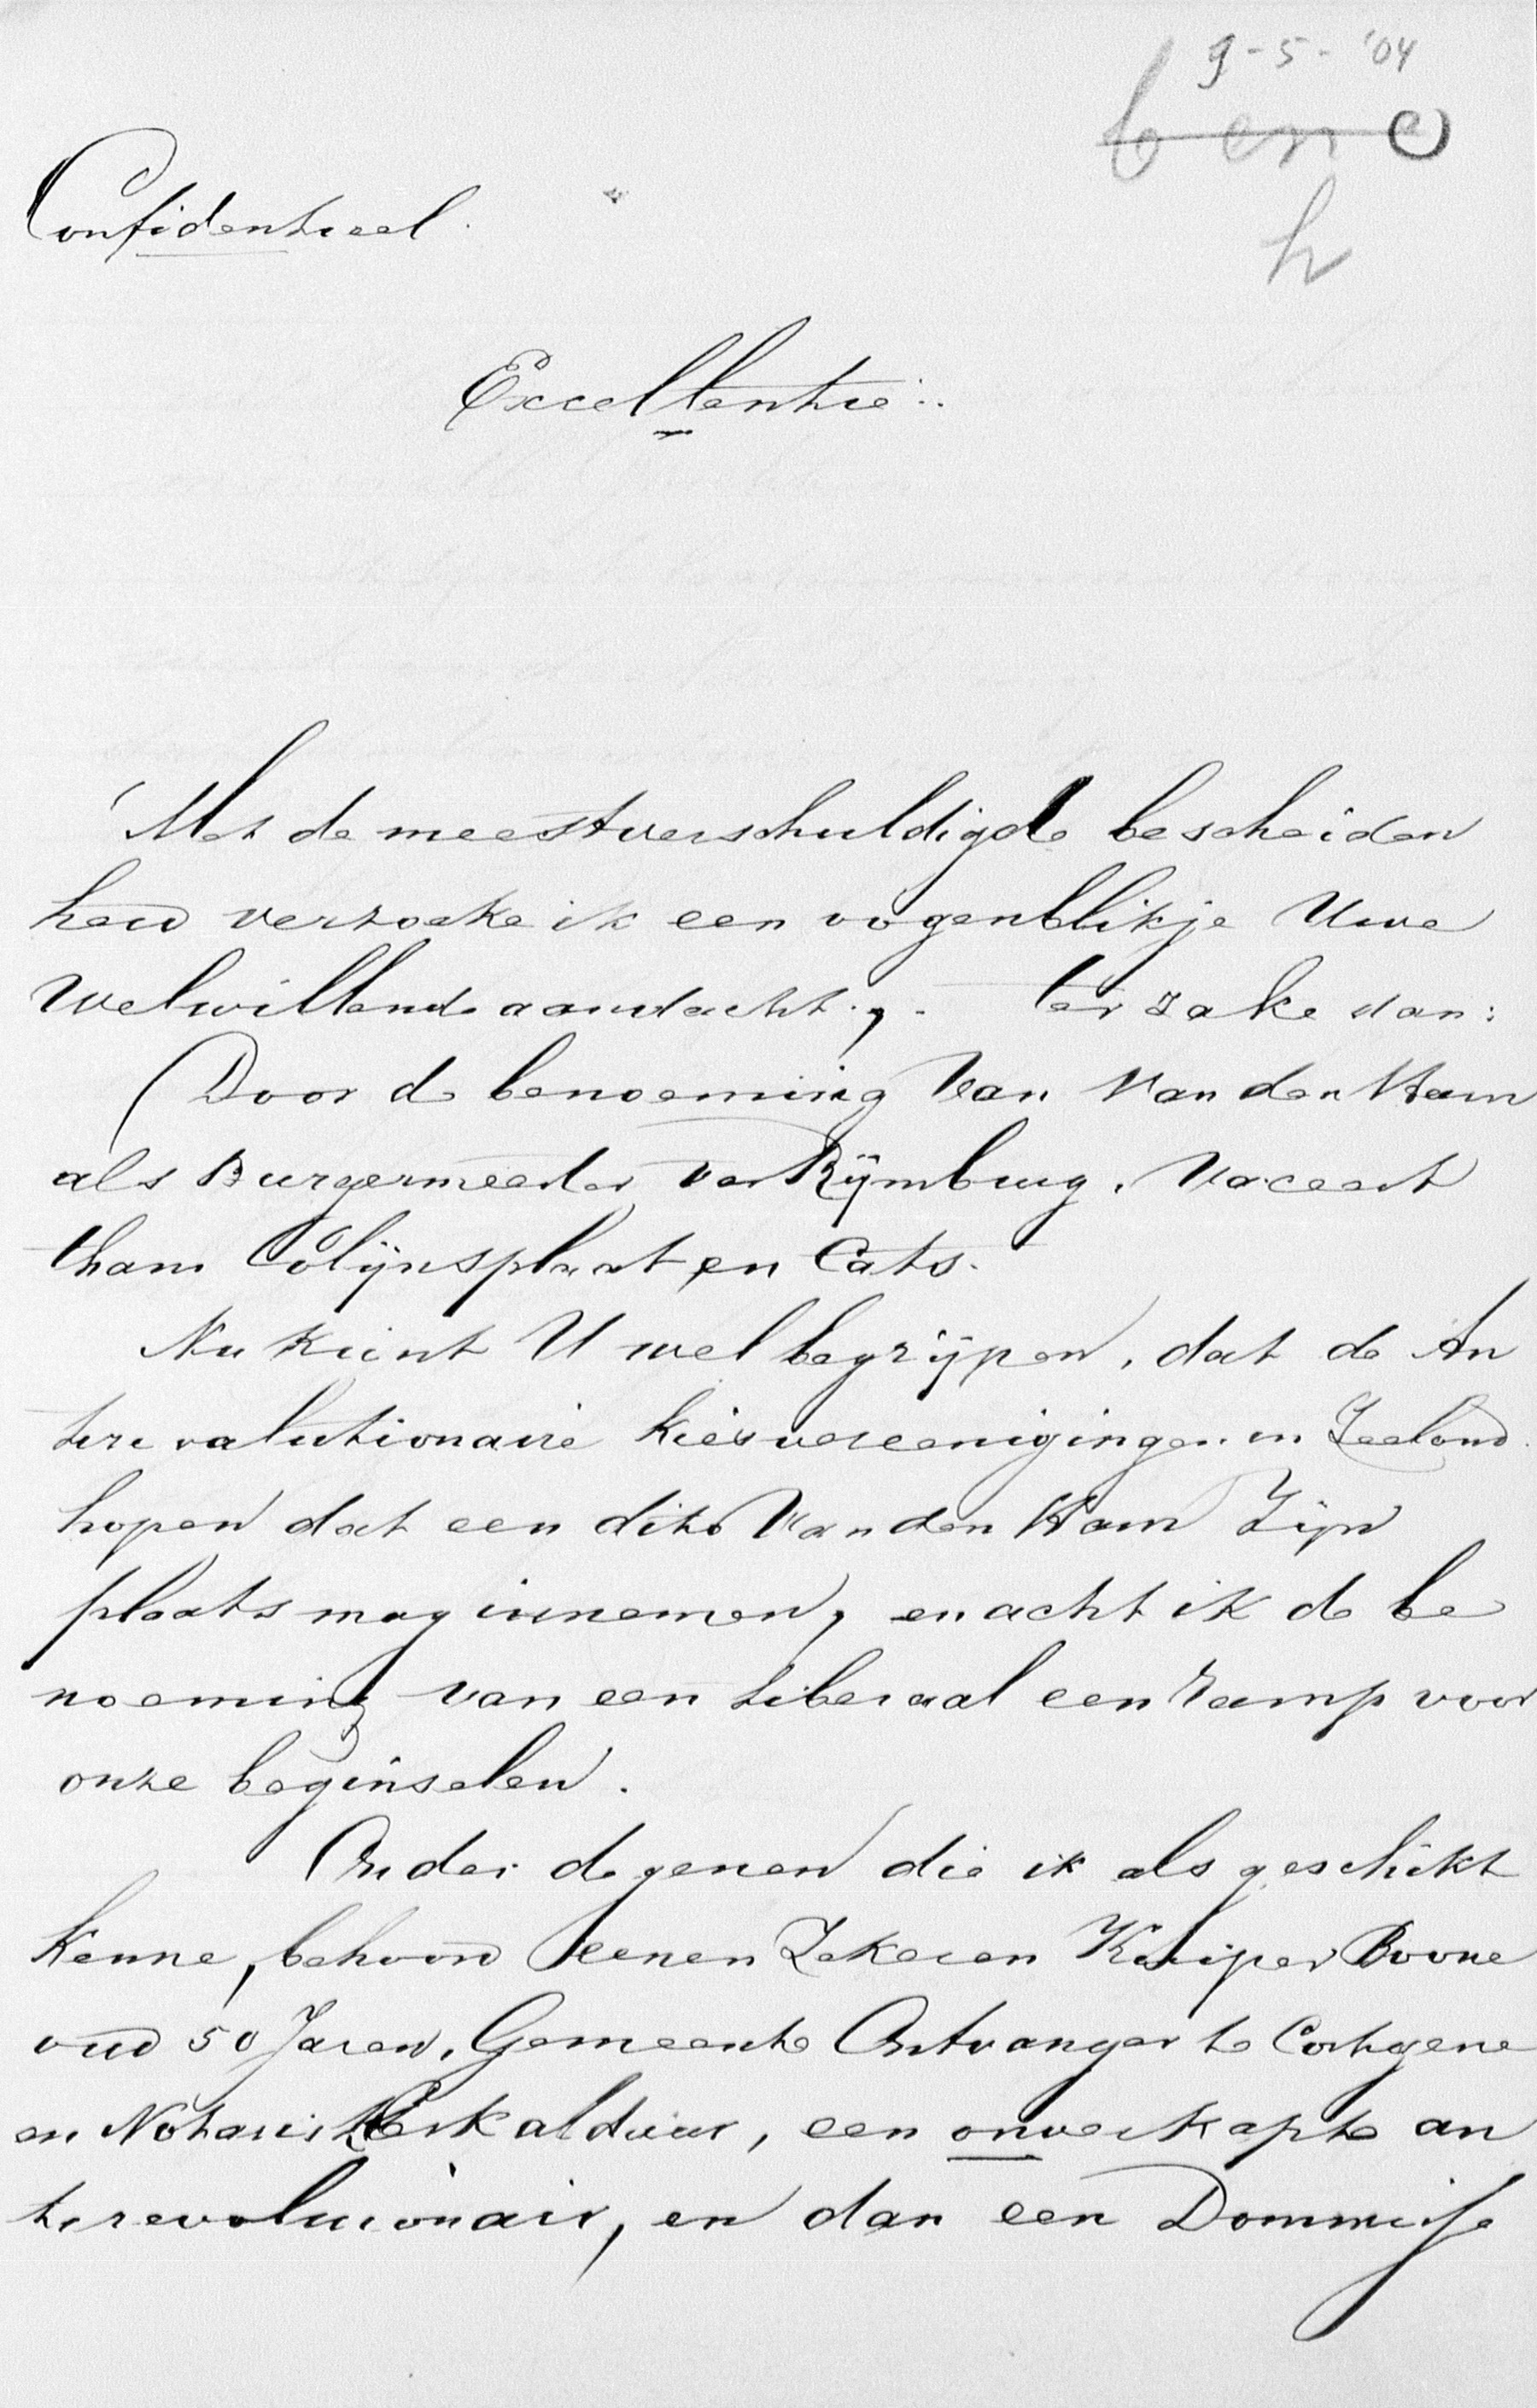 9-5-'04
b en e
h
Confidentieel.
Excellentie:.
Met de meestverschuldigde bescheiden
heid verzoeke ik een oogenblikje Uwe
Welwillende aandacht,. ter zake van:
Door de benoeming van Van den Ham
als Burgermeester van Rijnsburg, vaceert
thans Colijnsplaat en Cats.
Nu kunt U wel begrijpen, dat de An
tirevolutionaire kiesvereenigingen in Zeeland
hopen dat een dito Van den Ham Zijn
plaats mag innemen, en acht ik de be
noeming van een Liberaal een ramp voor
onze beginselen.
Onder degenen die ik als geschikt
kenne, behoord eenen Zekeren Kuiper Boone
oud 50 Jaren, Gemeente Ontvanger te Cortgene
en Notaris Klerk aldaar, een onverkapte an
tirevolucionair, en dan een Dommisse